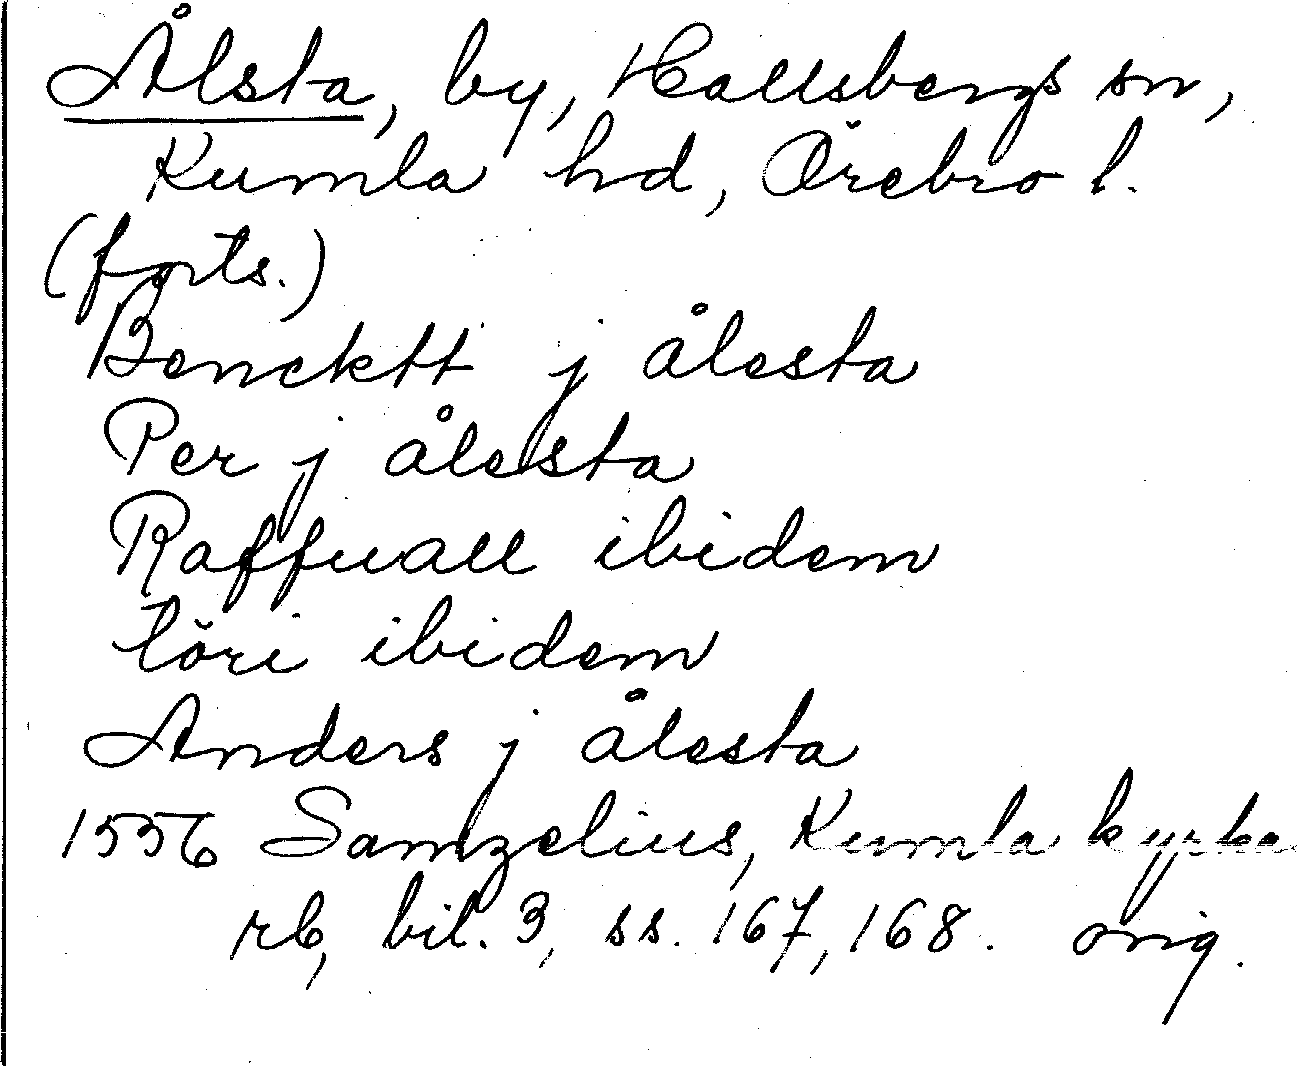 Ålsta, by, Hallsbergs sn,
Kumla hd, Örebro l.
(forts.)
Bencktt j ålesta
Per j ålesta
Raffuall ibidem
löri ibidem
Anders j ålesta
1556 Samzelius, Kumla kyrkas
rb, bil. 3, ss. 167, 168. orig.